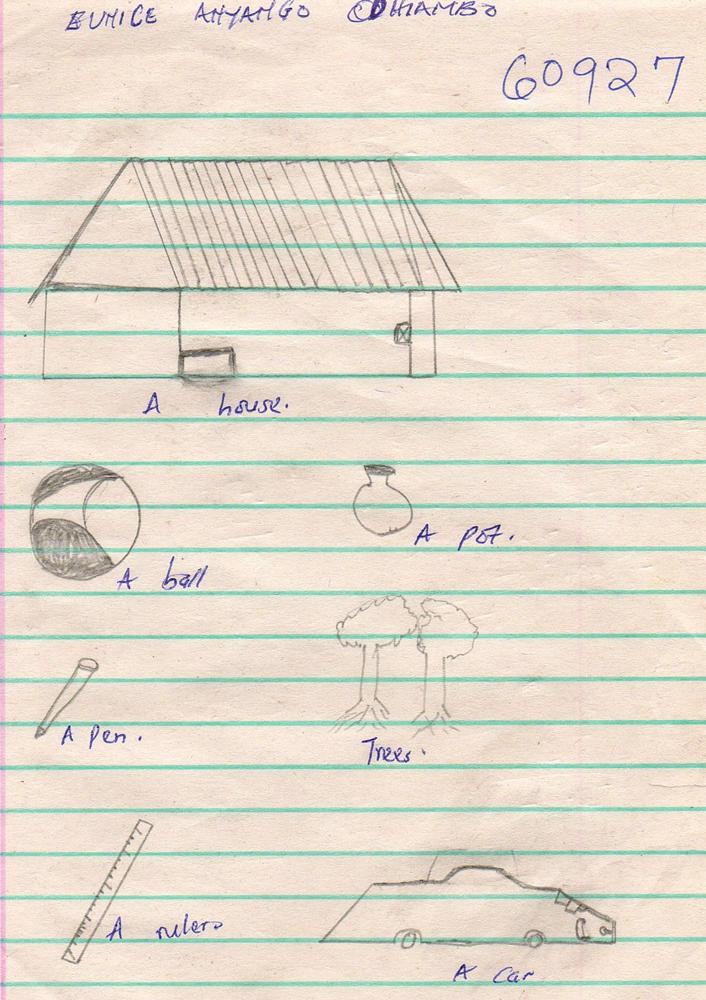 EUNICE ANYANGO ODHIAMBO
60927
A house.
A pot.
A ball
A pen.
Trees.
A rulero
A car